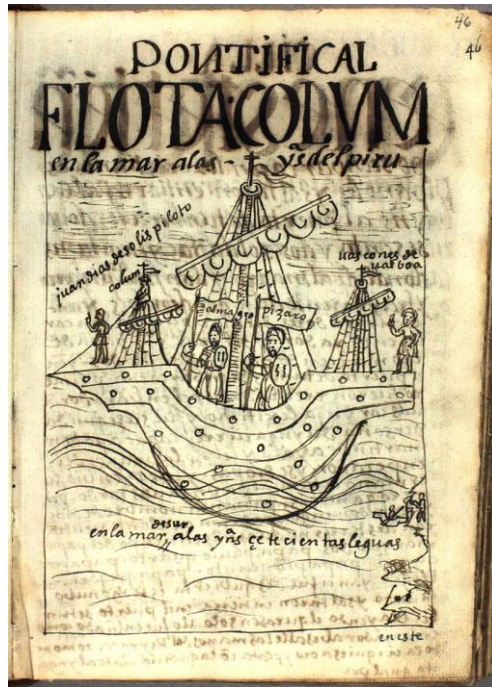 46
46
PONTIFICAL
FLOTA COLVM
en la mar a las ‑ yṽs del piru
juan dias de solis piloto
colum
uascones de
ualboa
almagro
pizaro
de sur
en la mar, a las yñs çetecientas leguas
en este